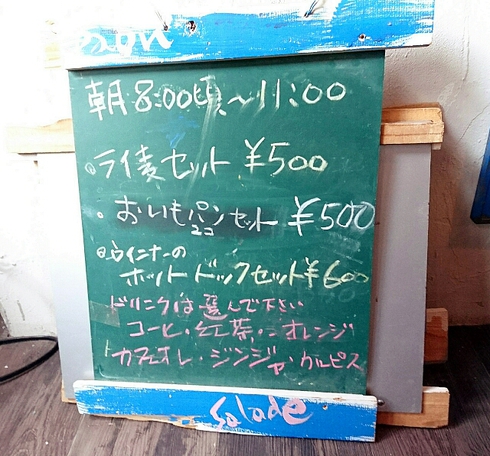 朝8:00頃~11:00
。ライ麦セット ¥500
・おいもパン2コセット ¥500
。ウインナーの
ホットドックセット¥600
ドリンクは選んで下さい
コーヒ・紅茶・オレンジ
カフェオレ・ジンジャ・カルピス
Salade